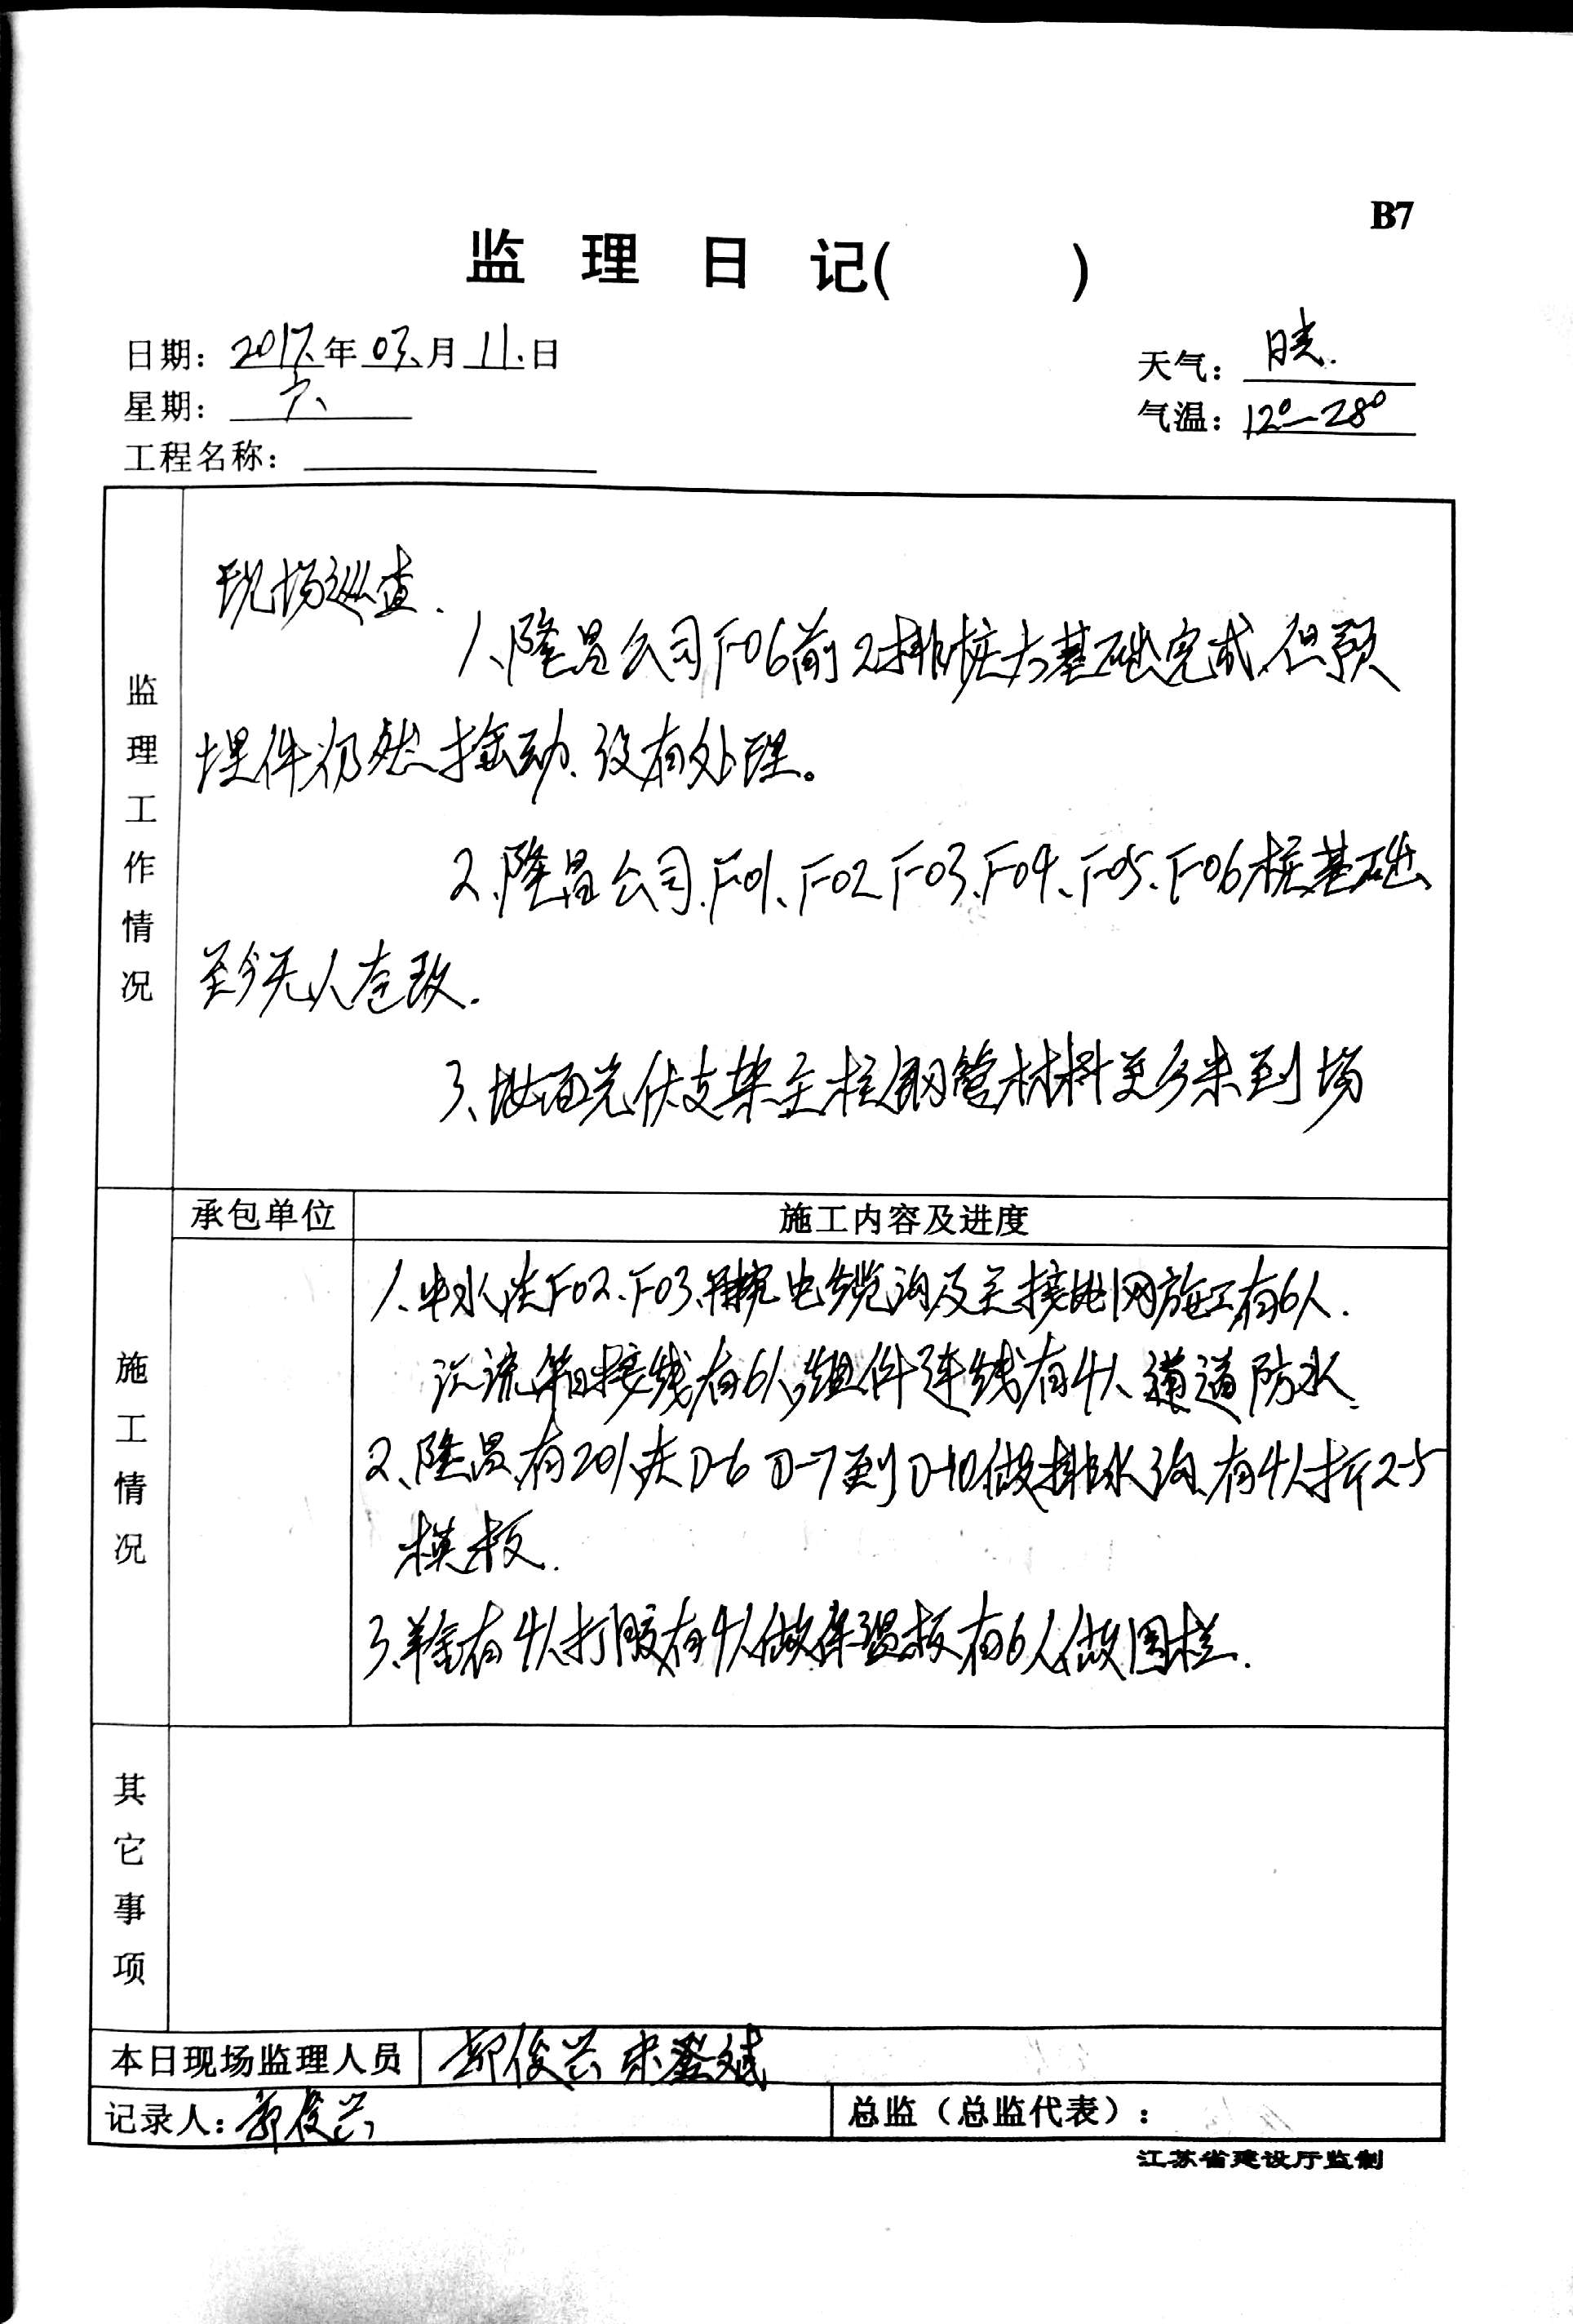 B7
监理日记( )
日期：2017年03月11日
天气：晴
星期：六
气温：12°—28°
工程名称：
监理工作情况
现场巡查.
1、隆昌公司F06前2排桩大基础完成，但预
埋件仍然摇动、没有处理。
2、隆昌公司、F01、F02、F03、F04、F05、F06桩基础
至今无人查改.
3、坡面光伏支架主柱钢管材料至今未到场
施工情况
承包单位
施工内容及进度
1、中水 F02、F03 电缆沟及 接地网施工有6人.
汇流箱接线有6人，组件连线有4人 通道防水.
2、隆昌有20人 D-6 D-7到D-10做排水沟、有4人拆2-5
模板.
3、 有4人打胶有4人做保温板有6人做围栏.
其它事项
本日现场监理人员 郭俊兴 宋登斌
记录人：郭俊兴
总监（总监代表）：
江苏省建设厅监制